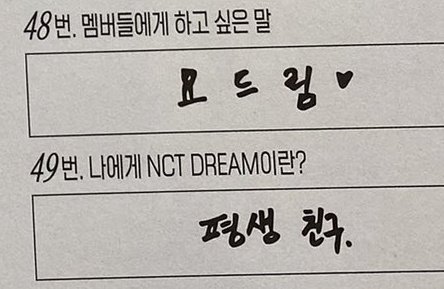 48번. 멤버들에게 하고 싶은 말
요 드 림 ♥
49번. 나에게 NCT DREAM이란?
평생 친구.